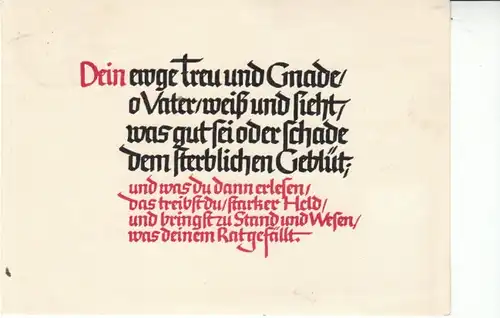 Dein ewge Treu und Gnade/
o Vater/weiß und sieht/
was gut sei oder schade
dem sterblichen Geblüt;
und was du dann erlesen/
das treibst du/starker Held/
und bringst zu Stand und Wesen/
was deinem Rat gefällt.